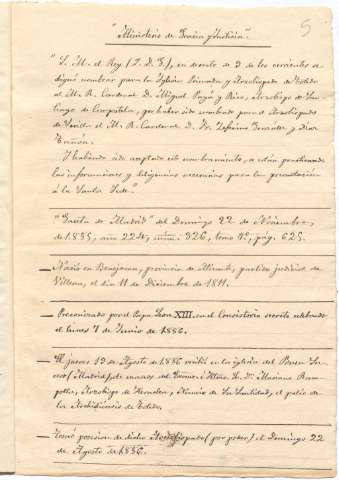 5
"Ministerio de Gracia y Justicia".
"S. M. el Rey (q. D. g.), en decreto de 3 de los corrientes se
dignó nombrar para la Iglesia Primada y Arzobispado de Toledo
al M. R. Cardenal D. Miguel Payá y Rico, Arzobispo de San-
tiago de Compostela, por haber sido nombrado para el Arzobispado
de Sevilla el M. R. Cardenal D. Fr. Zeferino González y Díaz
Tuñón.
Y habiendo sido aceptado este nombramiento, se están practicando
las informaciones y diligencias necesarias para la presentación
á la Santa Sede."
"Gaceta de Madrid" del Domingo 22 de Noviembre,
de 1885, año 224, núm. 326, tomo 4º, pág. 625.
— Nació en Benejama, provincia de Alicante, partido judicial de
Villena, el día 11 de Diciembre de 1811.
— Preconizado por el Papa Leon XIII en el Consistorio secreto celebrado
el lunes 7 de Junio de 1886.
— El jueves 19 de Agosto de 1886 recibió en la iglesia del Buen Su-
ceso (Madrid) de manos del Excmo. é Iltmo. Sr. Dr. Mariano Ram-
polla, Arzobispo de Heraclea, Nuncio de Su Santidad, el palio de
la Archidiócesis de Toledo.
— Tomó posesion de dicho Arzobispado (por poder) el Domingo 22
de Agosto de 1886.